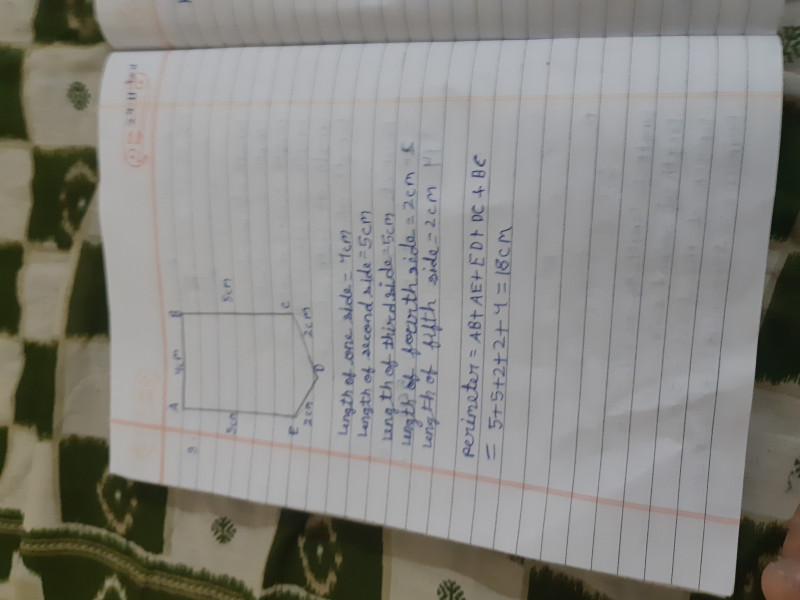 3.
A
4cm
B
5cm
5cm
E
C
2cm
D
2cm
Length of one side = 4cm
Length of second side = 5cm
Length of third side = 5cm
Length of fourth side = 2cm
Length of fifth side = 2cm
Perimeter = AB + AE + ED + DC + BC
= 5+5+2+2+4 = 18cm